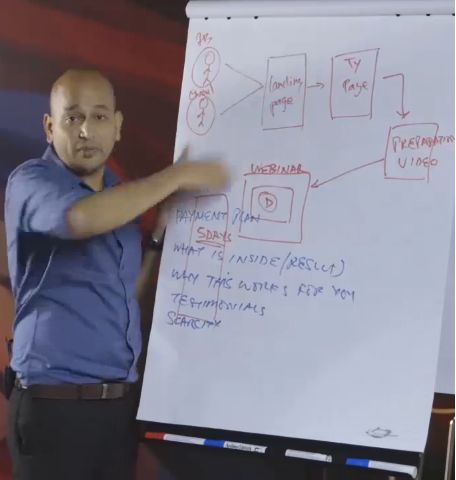 landing
page
TY
Page
PREPARATION
VIDEO
WEBINAR
PAYMENT PLAN
5 DAYS
WHAT IS INSIDE/RESULT)
WHY THIS WORKS FOR YOU
TESTIMONIALS
SCARCITY